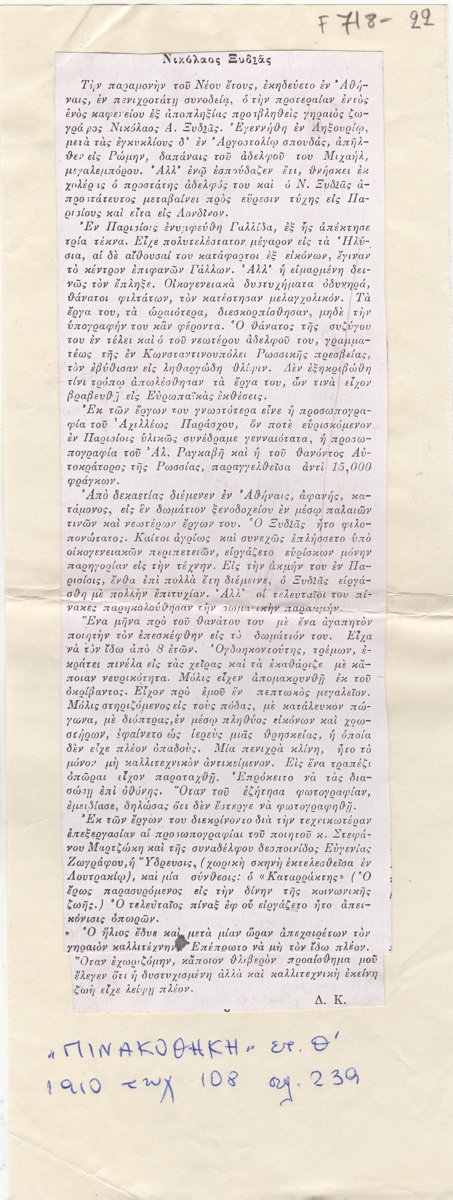 F 718 - 22
Νικόλαος Ξυδιᾶς
Τὴν παραμονὴν τοῦ Νέου ἔτους, ἐκηδεύετο ἐν Ἀθή-
ναις, ἐν πενιχροτάτῃ συνοδείᾳ, ὁ τὴν προτεραίαν ἐντὸς
ἑνὸς καφενείου ἐξ ἀποπληξίας προσβληθεὶς γηραιὸς ζω-
γράφος Νικόλαος Α. Ξυδιᾶς. Ἐγεννήθη ἐν Ληξουρίῳ,
μετὰ τὰς ἐγκυκλίους δ' ἐν Ἀργοστολίῳ σπουδάς, ἀπῆλ-
θεν εἰς Ρώμην, δαπάναις τοῦ ἀδελφοῦ του Μιχαήλ,
μεγαλεμπόρου. Ἀλλ' ἐνῷ ἐσπούδαζεν ἔτι, θνήσκει ἐκ
χολέρας ὁ προστάτης ἀδελφός του καὶ ὁ Ν. Ξυδιᾶς ἀ-
προστάτευτος μεταβαίνει πρὸς εὕρεσιν τύχης εἰς Πα-
ρισίους καὶ εἶτα εἰς Λονδῖνον.
Ἐν Παρισίοις ἐνυμφεύθη Γαλλίδα, ἐξ ἧς ἀπέκτησε
τρία τέκνα. Εἶχε πολυτελέστατον μέγαρον εἰς τὰ Ἠλύ-
σια, αἱ δὲ αἴθουσαί του κατάφορτοι ἐξ εἰκόνων, ἔγιναν
τὸ κέντρον ἐπιφανῶν Γάλλων. Ἀλλ' ἡ εἱμαρμένη δει-
νῶς τὸν ἔπληξε. Οἰκογενειακὰ δυστυχήματα ὀδυνηρά,
θάνατοι φιλτάτων, τὸν κατέστησαν μελαγχολικόν. Τὰ
ἔργα του, τὰ ὡραιότερα, διεσκορπίσθησαν, μηδὲ τὴν
ὑπογραφήν του κἂν φέροντα. Ὁ θάνατος τῆς συζύγου
του ἐν τέλει καὶ ὁ τοῦ νεωτέρου ἀδελφοῦ του, γραμμα-
τέως τῆς ἐν Κωνσταντινουπόλει Ρωσσικῆς πρεσβείας,
τὸν ἐβύθισαν εἰς ληθαργώδη θλῖψιν. Δὲν ἐξηκριβώθη
τίνι τρόπῳ ἀπωλέσθησαν τὰ ἔργα του, ὧν τινὰ εἶχον
βραβευθῆ εἰς Εὐρωπαϊκὰς ἐκθέσεις.
Ἐκ τῶν ἔργων του γνωστότερα εἶνε ἡ προσωπογρα-
φία τοῦ Ἀχιλλέως Παράσχου, ὃν ποτὲ εὑρισκόμενον
ἐν Παρισίοις ὑλικῶς συνέδραμε γενναιότατα, ἡ προσω-
πογραφία τοῦ Ἀλ. Ραγκαβῆ καὶ ἡ τοῦ θανόντος Αὐ-
τοκράτορος τῆς Ρωσσίας, παραγγελθεῖσα ἀντὶ 15,000
φράγκων.
Ἀπὸ δεκαετίας διέμενεν ἐν Ἀθήναις, ἀφανής, κα-
τάμονος, εἰς ἓν δωμάτιον ξενοδοχείου ἐν μέσῳ παλαιῶν
τινῶν καὶ νεωτέρων ἔργων του. Ὁ Ξυδιᾶς ἦτο φιλο-
πονώτατος. Καίτοι ἀγρίως καὶ συνεχῶς ἐπλήσσετο ὑπὸ
οἰκογενειακῶν περιπετειῶν, εἰργάζετο εὑρίσκων μόνην
παρηγορίαν εἰς τὴν τέχνην. Εἰς τὴν ἀκμήν του ἐν Πα-
ρισίοις, ἔνθα ἐπὶ πολλὰ ἔτη διέμεινε, ὁ Ξυδιᾶς εἰργά-
σθη μὲ πολλὴν ἐπιτυχίαν. Ἀλλ' οἱ τελευταῖοί του πί-
νακες παρηκολούθησαν τὴν σωματικὴν παρακμήν.
Ἕνα μῆνα πρὸ τοῦ θανάτου του μὲ ἕνα ἀγαπητὸν
ποιητὴν τὸν ἐπεσκέφθην εἰς τὸ δωμάτιόν του. Εἶχα
νὰ τὸν ἴδω ἀπὸ 8 ἐτῶν. Ὀγδοηκοντούτης, τρέμων, ἐ-
κράτει πινέλα εἰς τὰς χεῖρας καὶ τὰ ἐκαθάριζε μὲ κά-
ποιαν νευρικότητα. Μόλις εἶχεν ἀπομακρυνθῆ ἐκ τοῦ
ὀκρίβαντος. Εἶχον πρὸ ἐμοῦ ἓν πεπτωκὸς μεγαλεῖον.
Μόλις στηριζόμενος εἰς τοὺς πόδας, μὲ κατάλευκον πώ-
γωνα, μὲ διόπτρας, ἐν μέσῳ πληθύος εἰκόνων καὶ χρω-
στήρων, ἐφαίνετο ὡς ἱερεὺς μιᾶς θρησκείας, ἡ ὁποία
δὲν εἶχε πλέον ὀπαδούς. Μία πενιχρὰ κλίνη, ἦτο τὸ
μόνον μὴ καλλιτεχνικὸν ἀντικείμενον. Εἰς ἕνα τραπέζι
ὀπῶραι εἶχον παραταχθῆ. Ἐπρόκειτο νὰ τὰς δια-
σώσῃ ἐπὶ ὀθόνης. Ὅταν τοῦ ἐζήτησα φωτογραφίαν,
ἐμειδίασε, δηλώσας ὅτι δὲν ἔστεργε νὰ φωτογραφηθῇ.
Ἐκ τῶν ἔργων του διεκρίνοντο διὰ τὴν τεχνικωτέραν
ἐπεξεργασίαν αἱ προσωπογραφίαι τοῦ ποιητοῦ κ. Στεφά-
νου Μαρτζώκη καὶ τῆς συναδέλφου δεσποινίδος Εὐγενίας
Ζωγράφου, ἡ Ὕδρευσις, (χωρικὴ σκηνὴ ἐκτελεσθεῖσα ἐν
Λουτρακίῳ), καὶ μία σύνθεσις: ὁ «Καταρράκτης» (Ὁ
ἔρως παρασυρόμενος εἰς τὴν δίνην τῆς κοινωνικῆς
ζωῆς.) Ὁ τελευταῖος πίναξ ἐφ' οὗ εἰργάζετο ἦτο ἀπει-
κόνισις ὀπωρῶν.
Ὁ ἥλιος ἔδυε καὶ μετὰ μίαν ὥραν ἀπεχαιρέτων τὸν
γηραιὸν καλλιτέχνην. Ἐπέπρωτο νὰ μὴ τὸν ἴδω πλέον.
Ὅταν ἐχωρίζομην, κάποιον θλιβερὸν προαίσθημα μοῦ
ἔλεγεν ὅτι ἡ δυστυχισμένη ἀλλὰ καὶ καλλιτεχνικὴ ἐκείνη
ζωὴ εἶχε λείψῃ πλέον.
Δ. Κ.
"ΠΙΝΑΚΟΘΗΚΗ" ετ. Θ'
1910 τευχ 108 σελ. 239